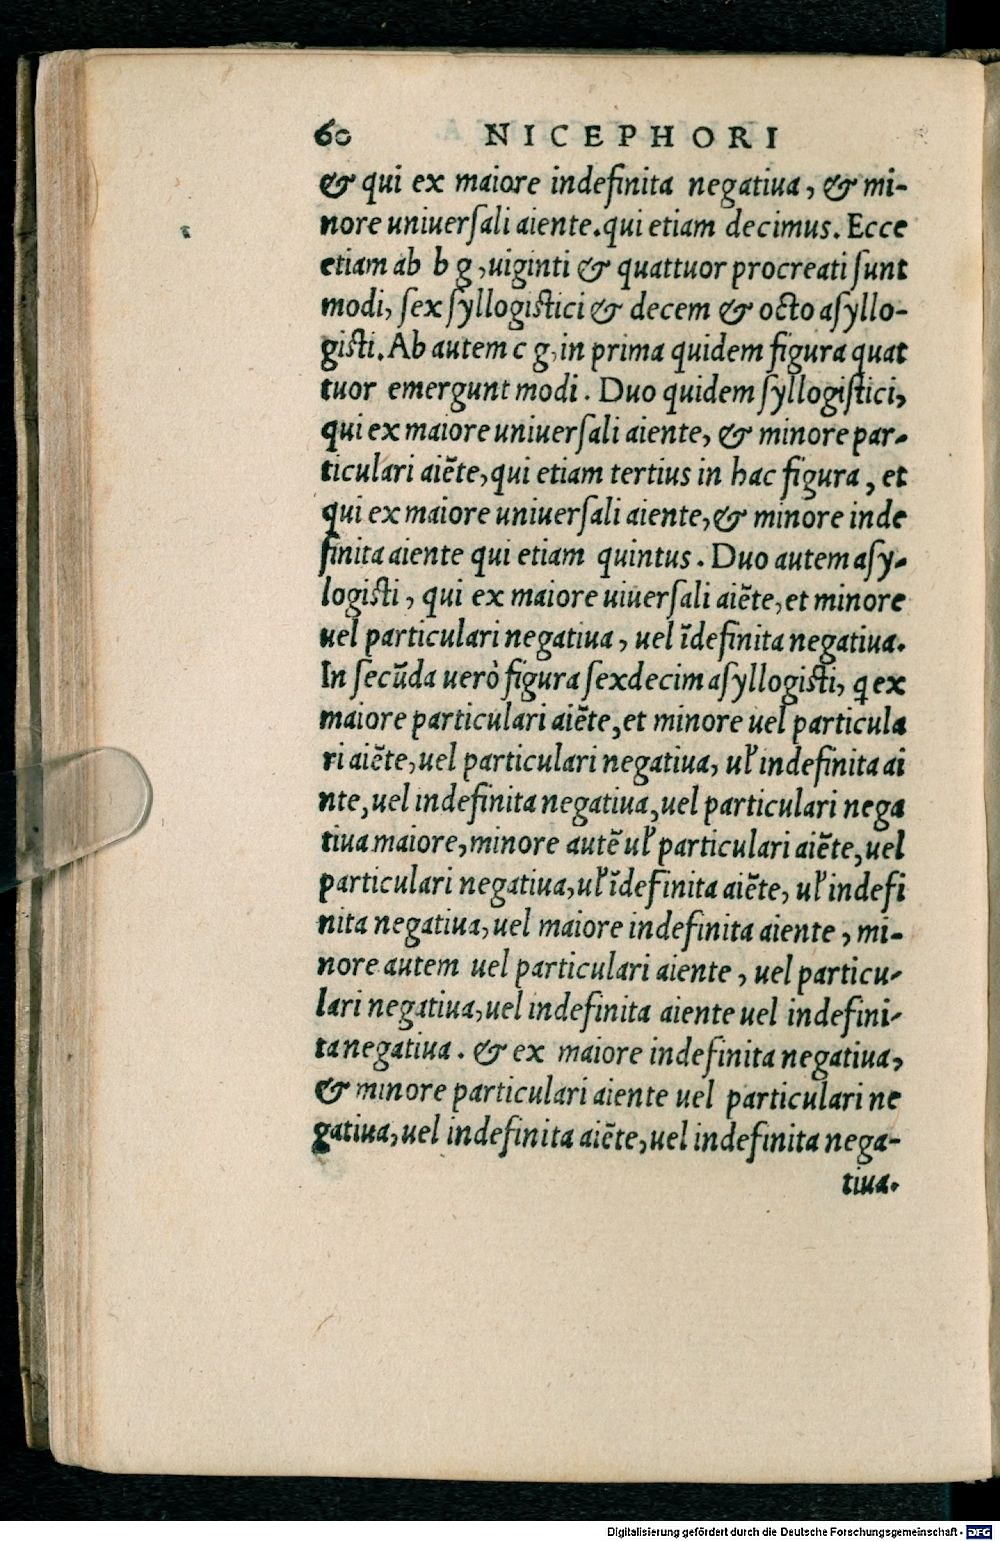 60 NICEPHORI
& qui ex maiore indefinita negatiua, & mi-
nore uniuerſali aiente.qui etiam decimus. Ecce
etiam ab b g ,uiginti & quattuor procreati ſunt
modi, ſex ſyllogiſtici & decem & octo aſyllo-
giſti. Ab autem c g, in prima quidem figura quat
tuor emergunt modi. Duo quidem ſyllogiſtici,
qui ex maiore uniuerſali aiente, & minore par-
ticulari aiēte, qui etiam tertius in hac figura, et
qui ex maiore uniuerſali aiente, & minore inde
finita aiente qui etiam quintus. Duo autem aſy-
logiſti, qui ex maiore uiuerſali aiēte, et minore
uel particulari negatiua, uel īdefinita negatiua.
In ſecūda uerò figura ſexdecim aſyllogiſti, ꝗ ex
maiore particulari aiēte, et minore uel particula
ri aiēte, uel particulari negatiua, uƚ indefinita ai
nte, uel indefinita negatiua, uel particulari nega
tiua maiore, minore autē uƚ particulari aiēte, uel
particulari negatiua, uƚ īdefinita aiēte, uƚ indefi
nita negatiua, uel maiore indefinita aiente, mi-
nore autem uel particulari aiente, uel particu-
lari negatiua, uel indefinita aiente uel indefini-
ta negatiua. & ex maiore indefinita negatiua,
& minore particulari aiente uel particulari ne
gatiua, uel indefinita aiēte, uel indefinita nega-
tiua.
Digitalisierung gefördert durch die Deutsche Forschungsgemeinschaft - DFG